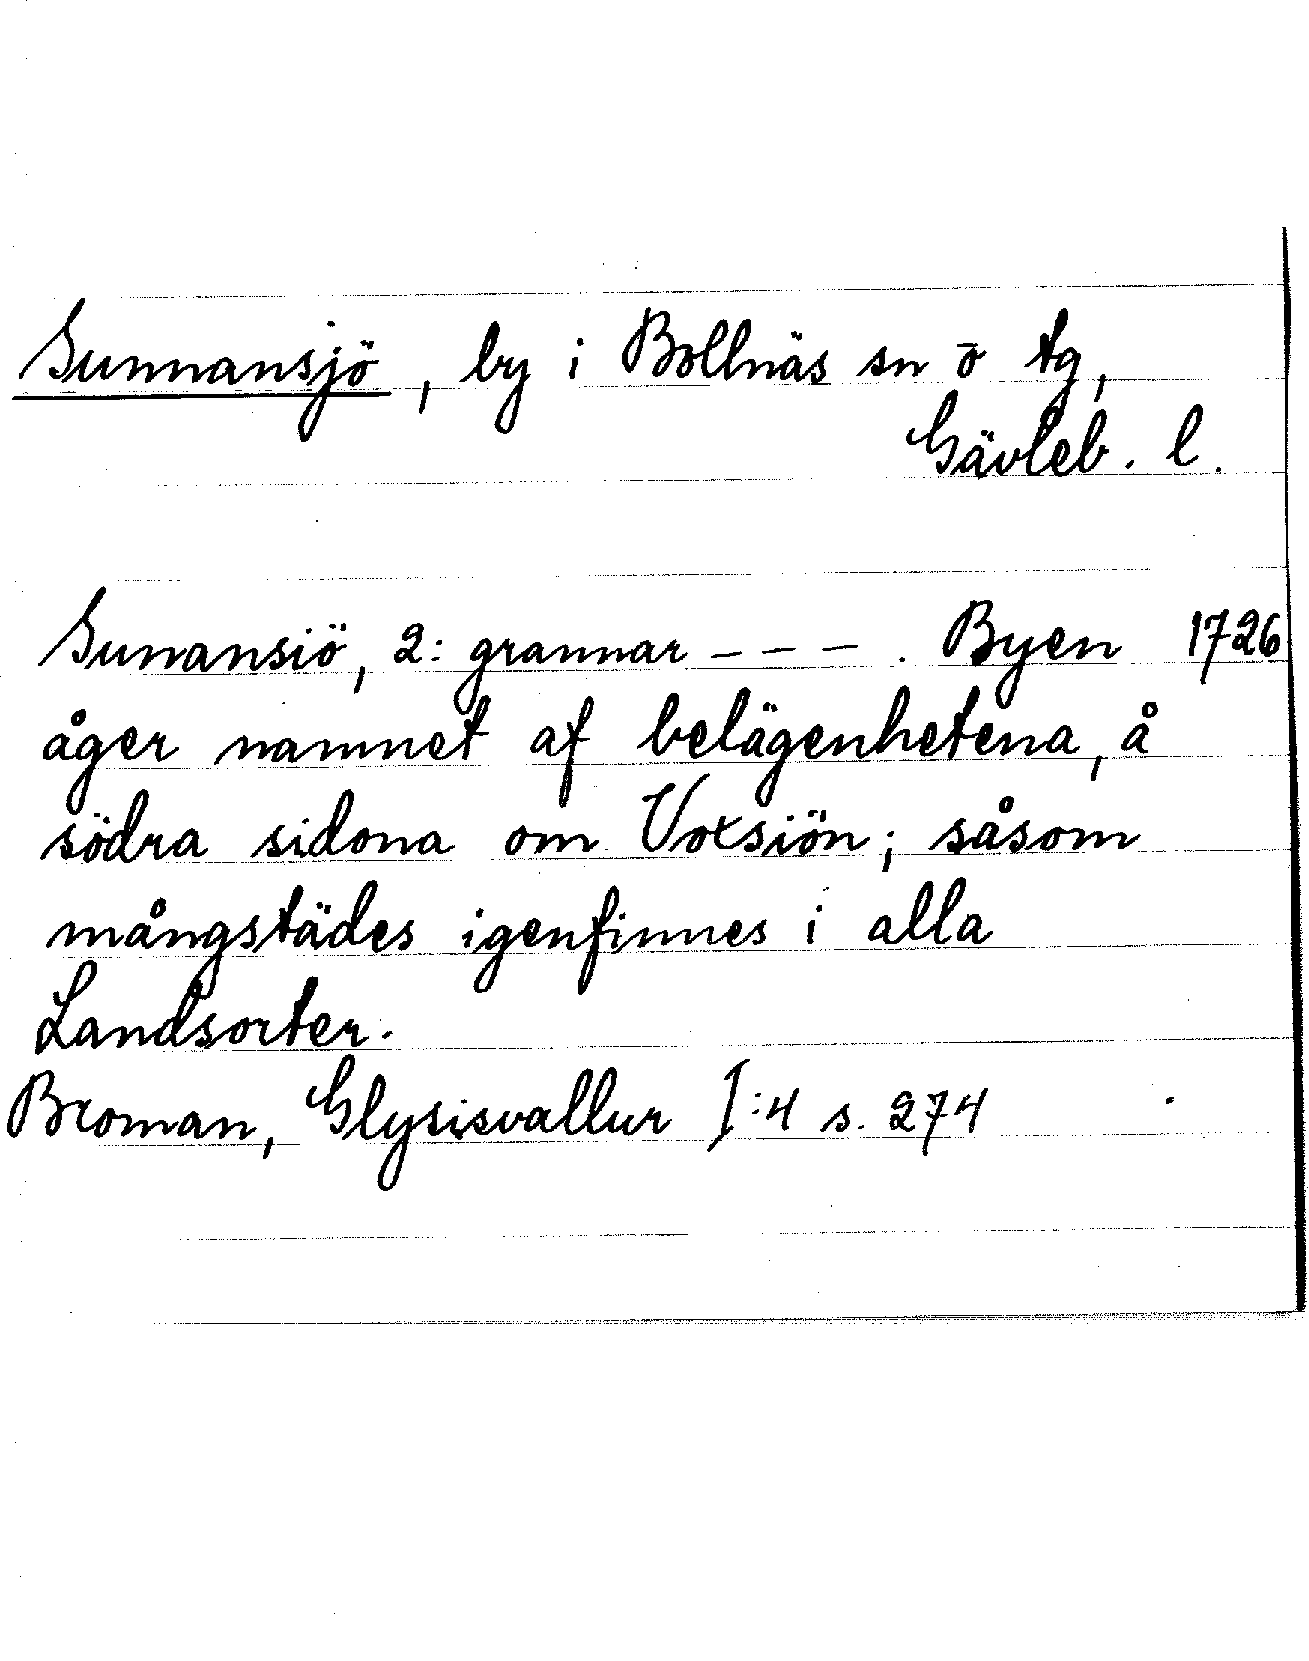 Sunnansjö, by i Bollnäs sn o tg,
Gävleb. l.
Sunansiö, 2: grannar - - - . Byen 1726
åger namnet af belägenhetena, å
södra sidona om Voxsiön; såsom
mångstädes igenfinnes i alla
Landsorter.
Broman, Glysisvallur I:4 s. 274